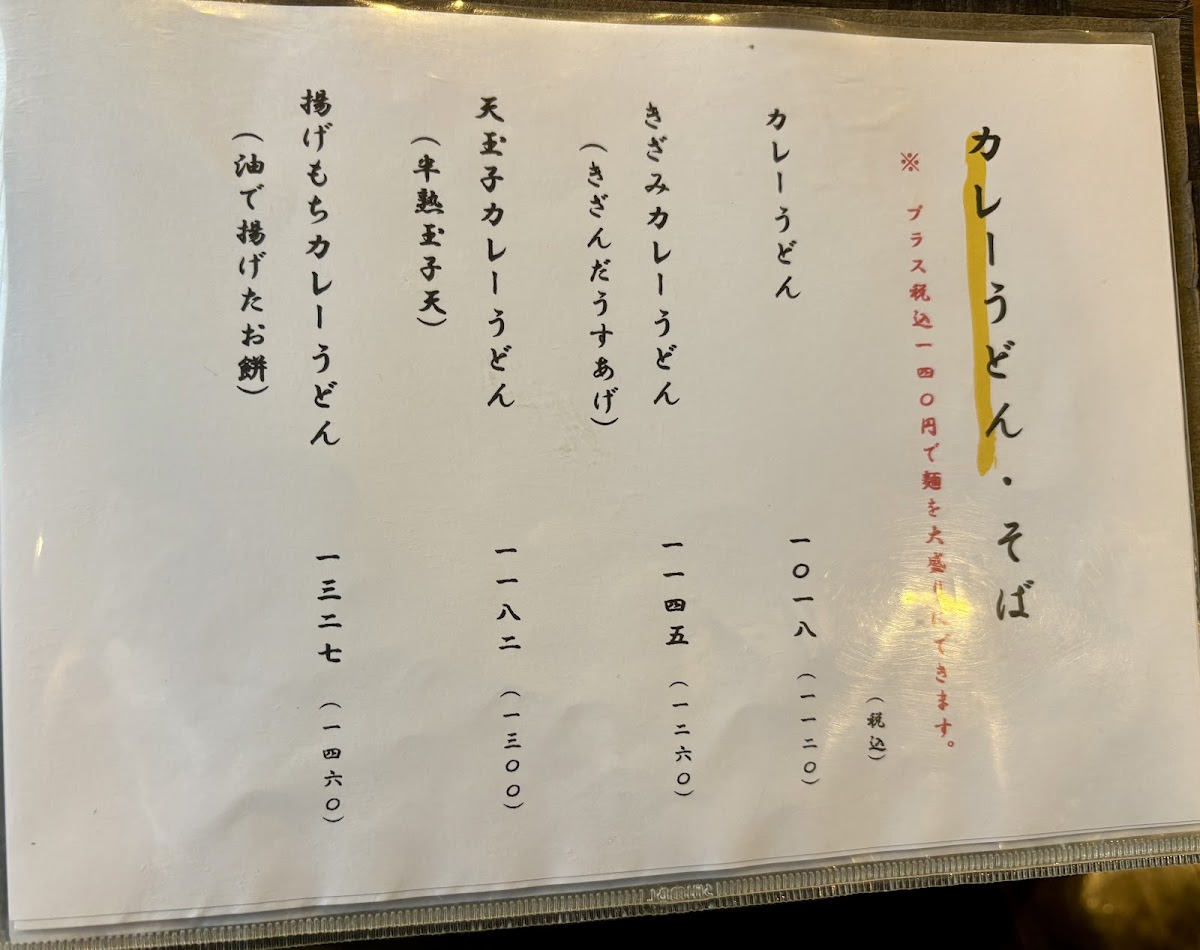 カレーうどん・そば
※ プラス税込一四〇円で麺を大盛りにできます。
（税込）
カレーうどん 一〇一八（一一二〇）
きざみカレーうどん 一一四五（一二六〇）
（きざんだうすあげ）
天玉子カレーうどん 一一八二（一三〇〇）
（半熟玉子天）
揚げもちカレーうどん 一三二七（一四六〇）
（油で揚げたお餅）